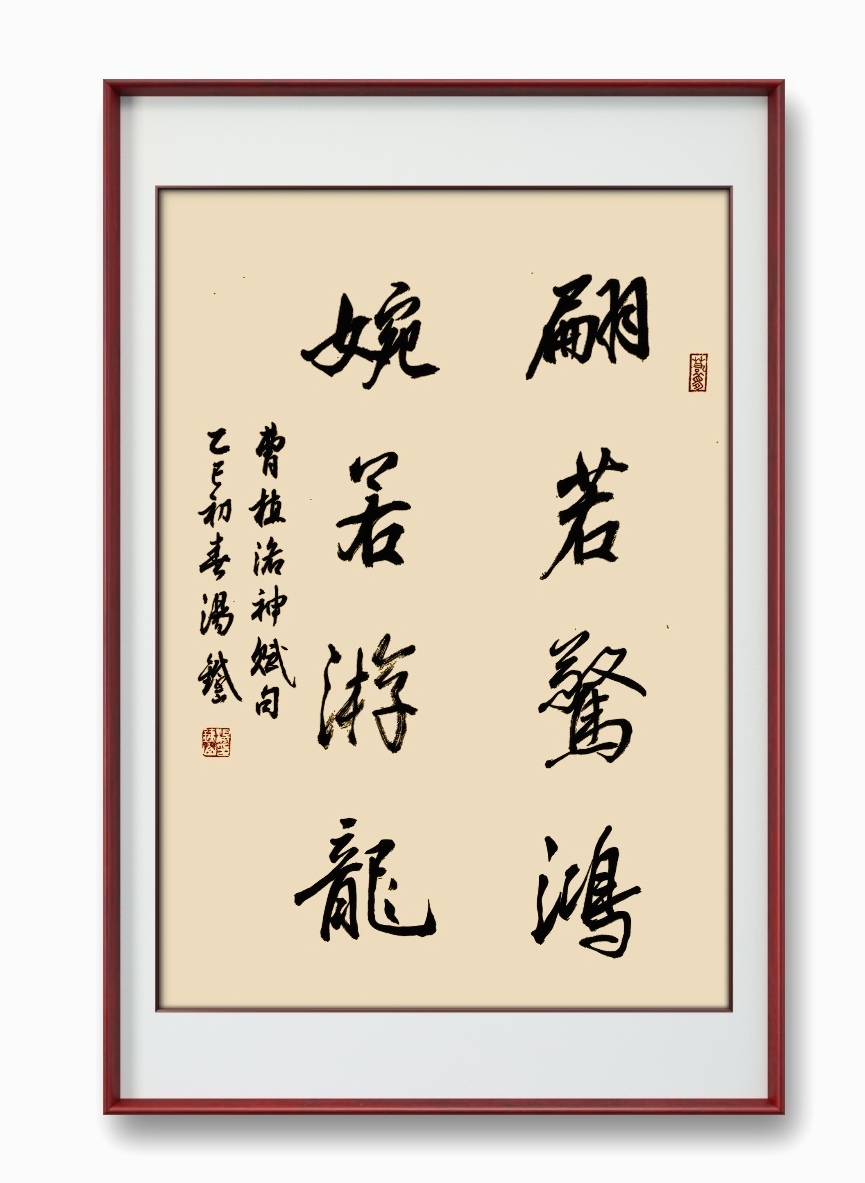 翩若驚鴻
婉若游龍
曹植洛神賦句
乙巳初春湯